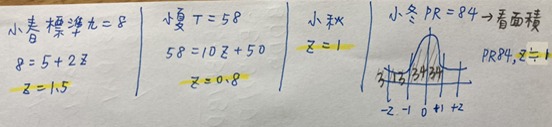 小春 標準九=8
8=5+2Z
Z=1.5
小夏 T=58
58=10Z+50
Z=0.8
小秋
Z=1
小冬 PR=84→看面積
PR84, Z≒1
3 13 34 34
-2 -1 0 +1 +2